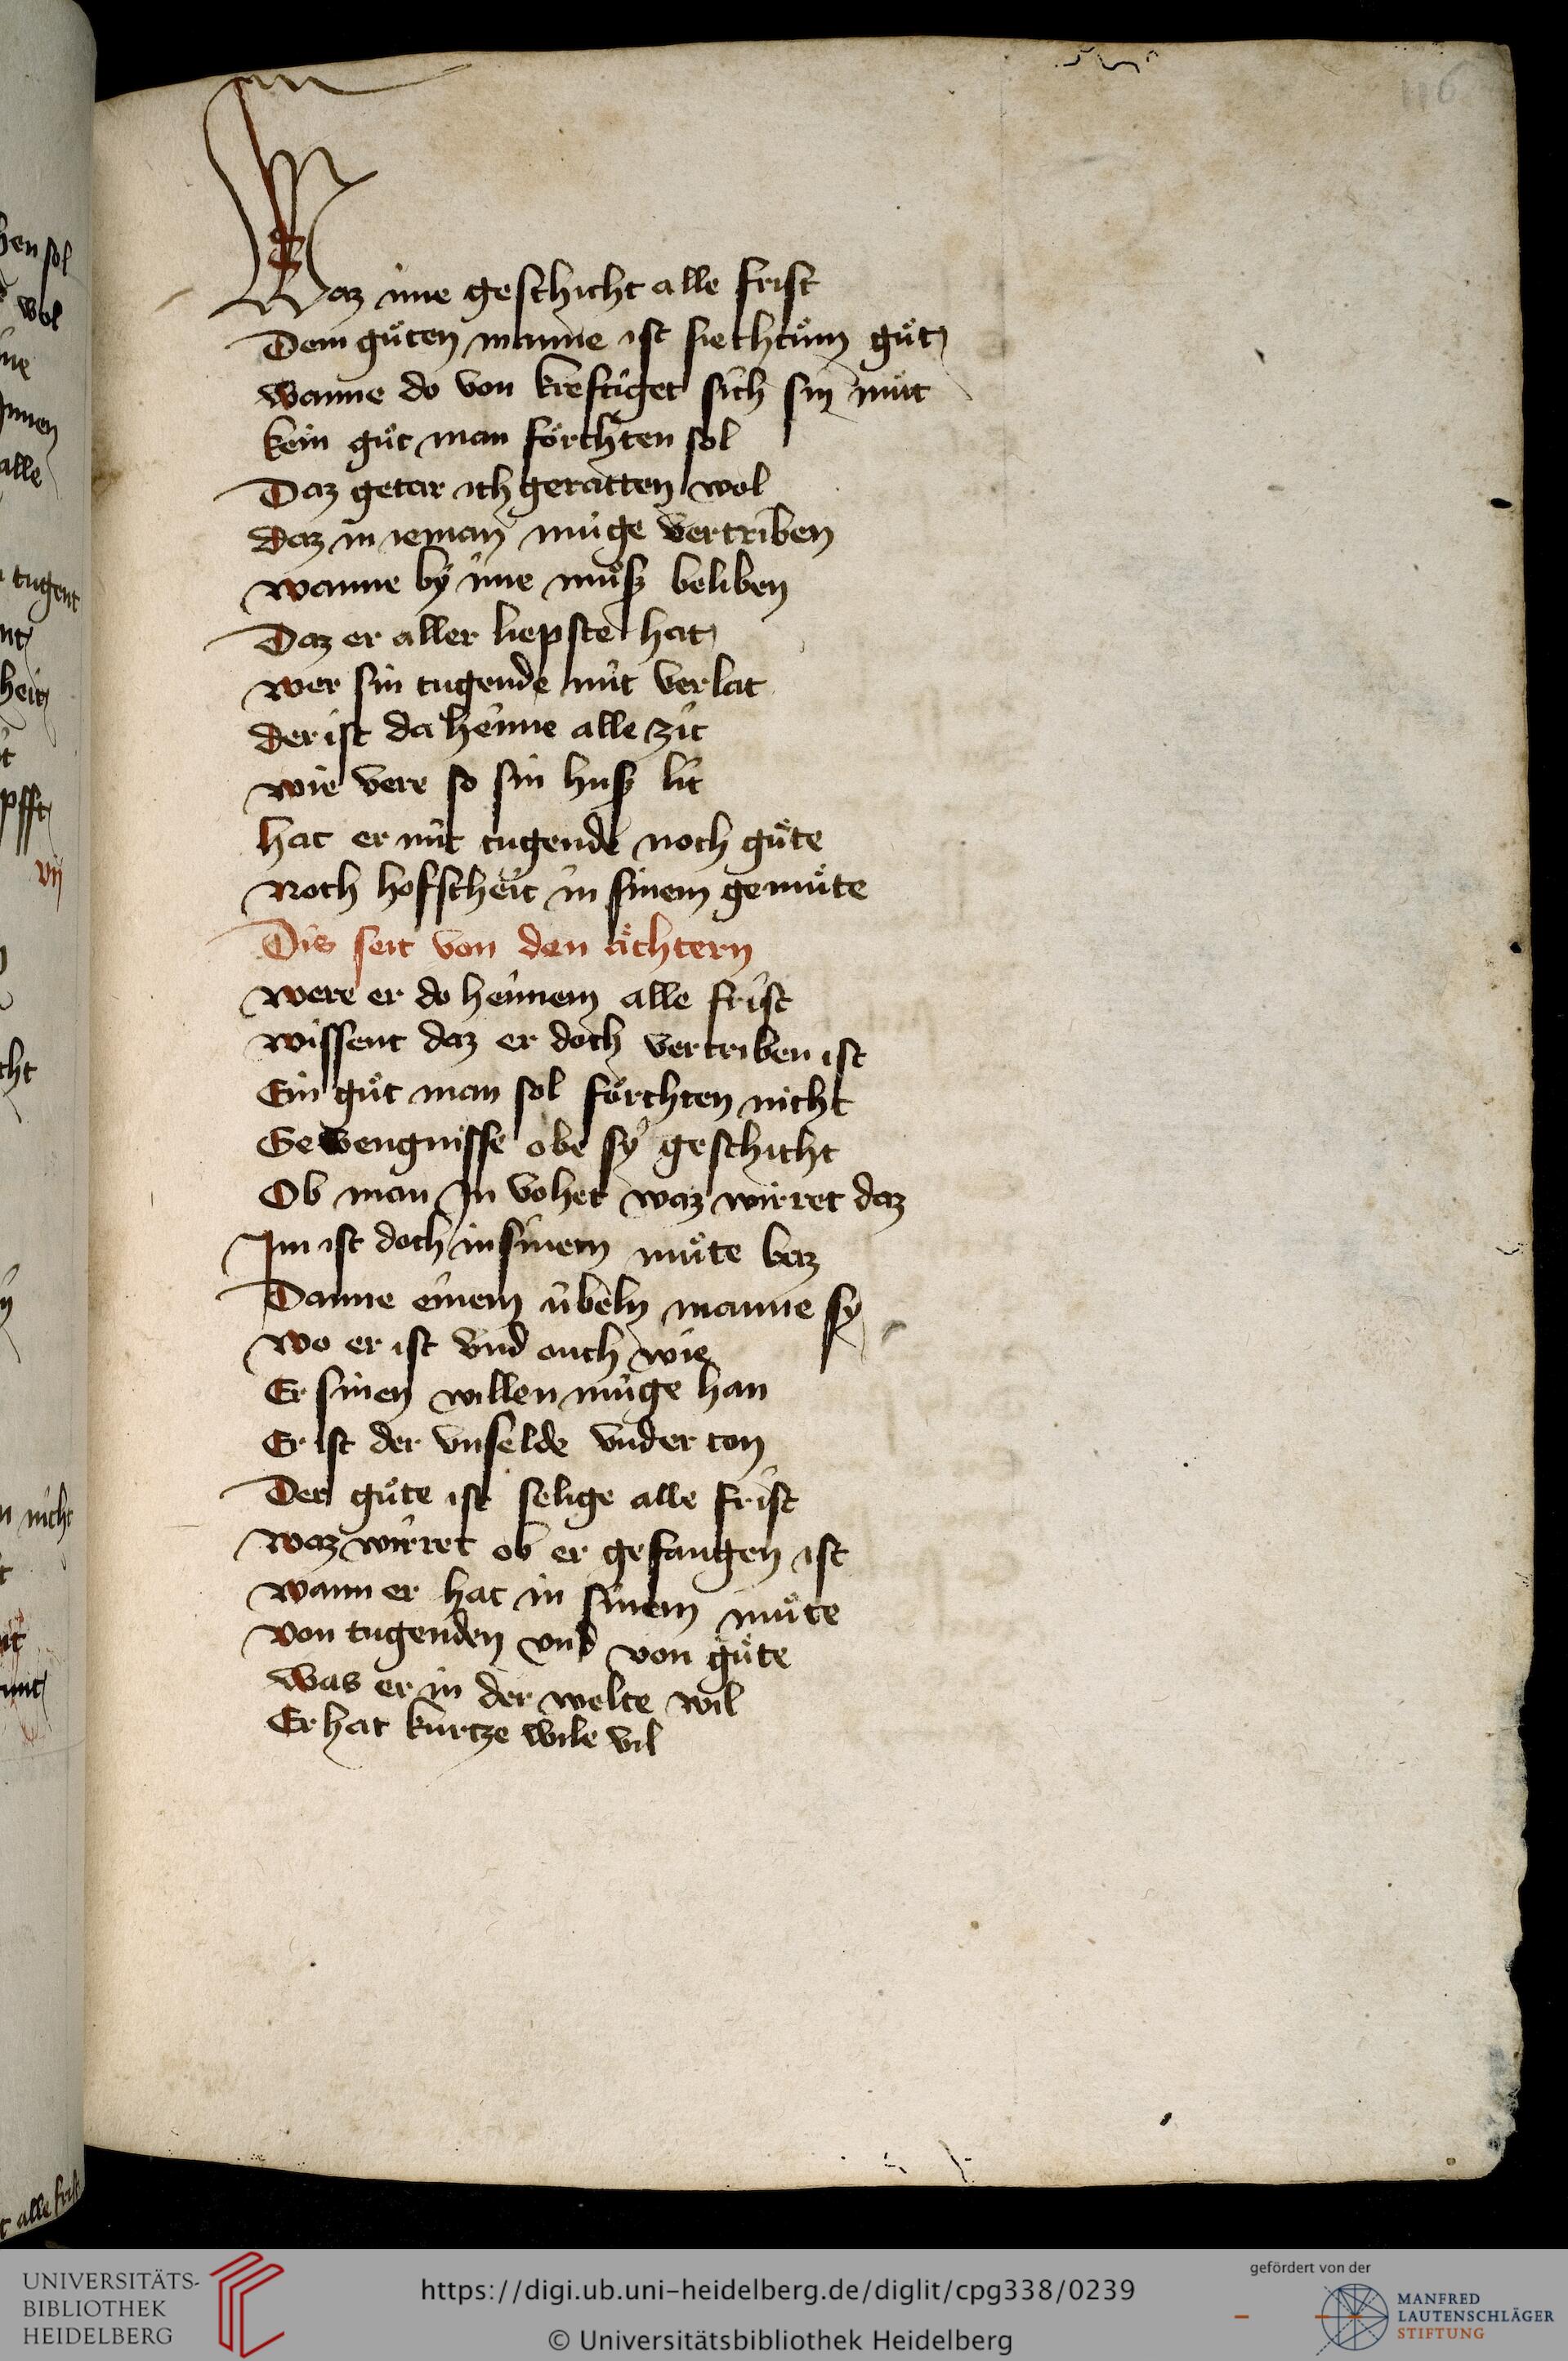 116
Waz ime geschicht alle frist
Dem gůten manne ist siechtům gůt
wanne do von kreftiget sich sin můt
kein gůt man förchten sol
Daz getar ich geratten wol
Daz in ieman müge vertriben
wanne by ime můß beliben
Daz er aller liepste hat
wer sin tugende nüt verlat
Der ist da heime alle zit
wie vere so sin huß lit
hat er nüt tugende noch gůte
Noch hofscheit in sinem gemůte
Dis seit von den ächtern
were er do heimem alle frist
wissent daz er doch vertriben ist
Ein gůt man sol förchten nicht
Gevengnisse obe sy geschicht
Ob man In vohet waz wirret daz
Im ist doch in sinem můte baz
Danne einem übeln manne sy
wo er ist vnd ouch wie
Er sinen willen müge han
Er ist der vnselde vnder ton
Der gůte ist selige alle frist
waz wirret ob er gefangen ist
wann er hat in sinem můte
von tugenden vnd von gůte
was er in der welte wil
Er hat kurtze wile vil
hen sol
wol
Innen
alle
tugent
heit
vij
nicht
alle frist
UNIVERSITÄTS-
BIBLIOTHEK
HEIDELBERG
https://digi.ub.uni-heidelberg.de/diglit/cpg338/0239
© Universitätsbibliothek Heidelberg
gefördert von der
MANFRED
LAUTENSCHLÄGER
STIFTUNG